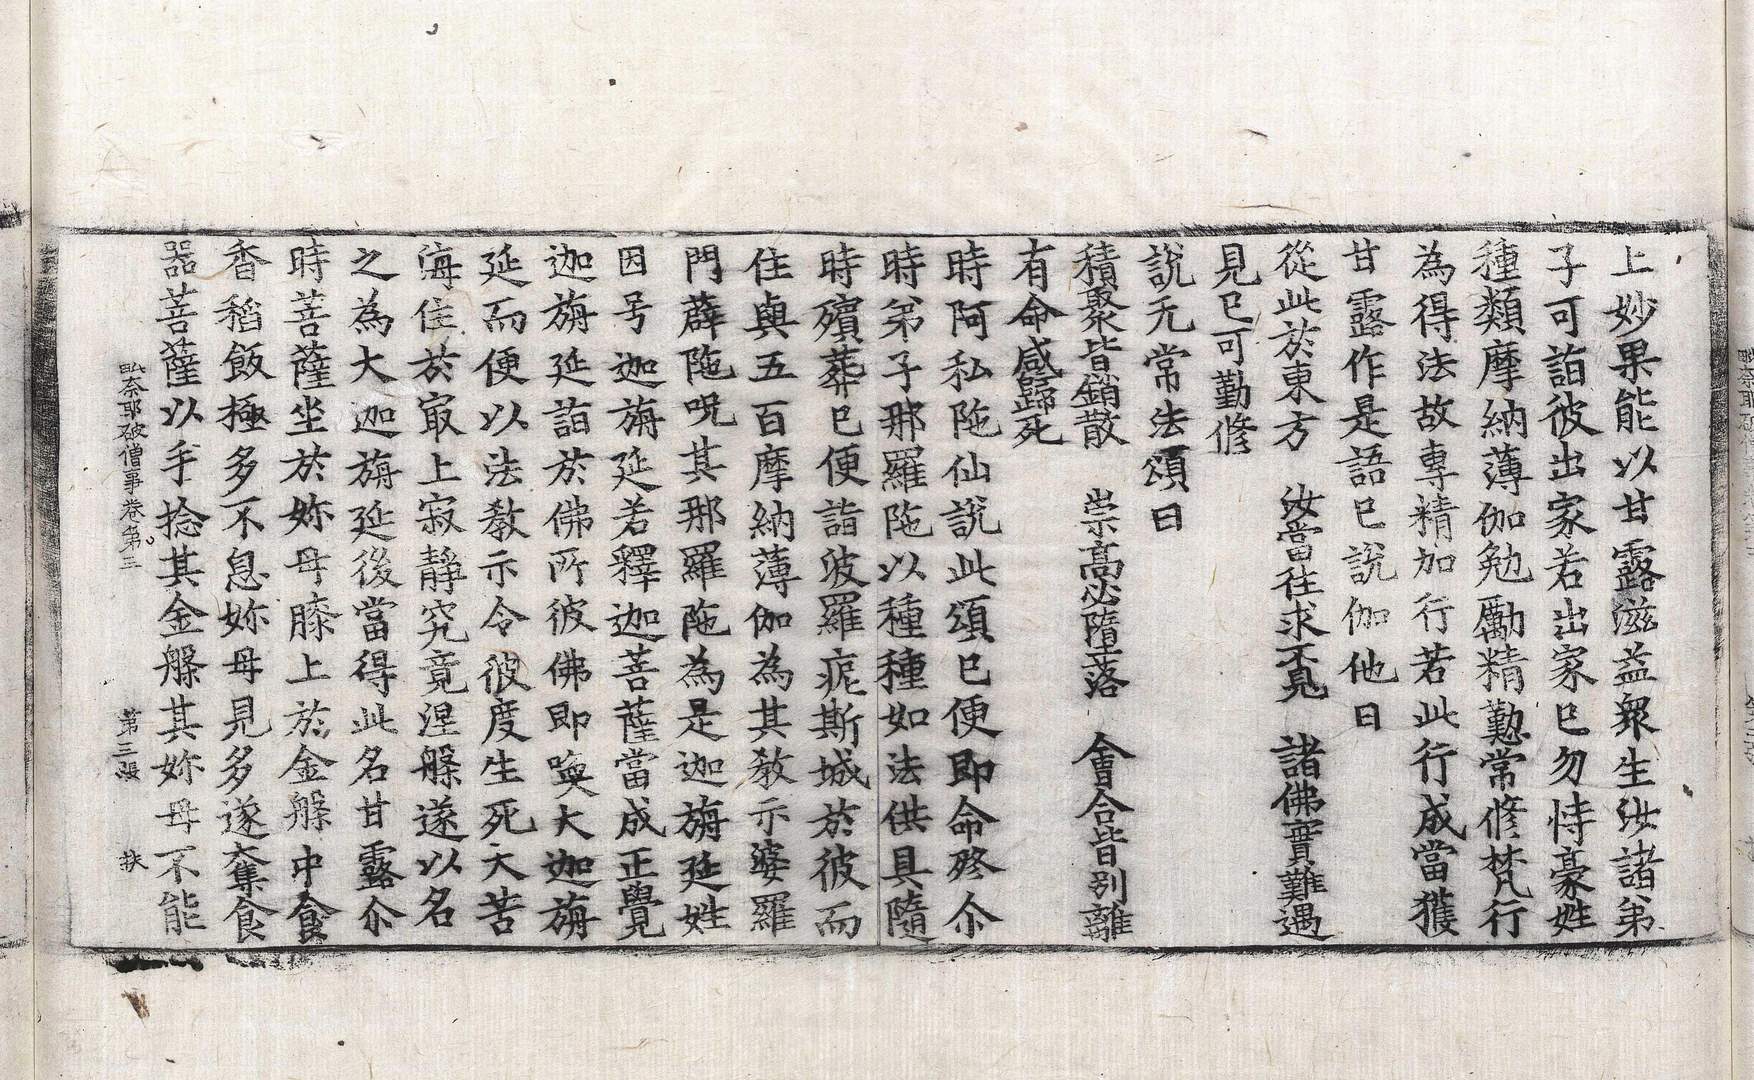 上妙果能以甘露滋益衆生汝諸弟
子可詣彼出家若出家已勿恃豪姓
種類摩納薄伽勉勵精懃常修梵行
為得法故專精加行若此行成當獲
甘露作是語已說伽他曰
從此於東方　汝當往求不見　諸佛實難遇
見已可勤修
說无常法頌曰
積聚皆銷散　崇高必墮落　會合皆別離
有命咸歸死
時阿私陁仙說此頌已便即命終尒
時弟子那羅陁以種種如法供具隨
時殯葬已便詣波羅痆斯城於彼而
住與五百摩納薄伽為其教示婆羅
門薜陁呪其那羅陁為是迦旃延姓
因号迦旃延若釋迦菩薩當成正覺
迦旃延詣於佛所彼佛即喚大迦旃
延而便以法教示令彼度生死大苦
海住於㝡上寂靜究竟涅槃遂以名
之為大迦旃延後當得此名甘露尒
時菩薩坐於妳母膝上於金槃中食
香稻飯極多不息妳母見多遂奪食
器菩薩以手捻其金槃其妳母不能
毗奈耶破僧事卷第三　第三張　扶